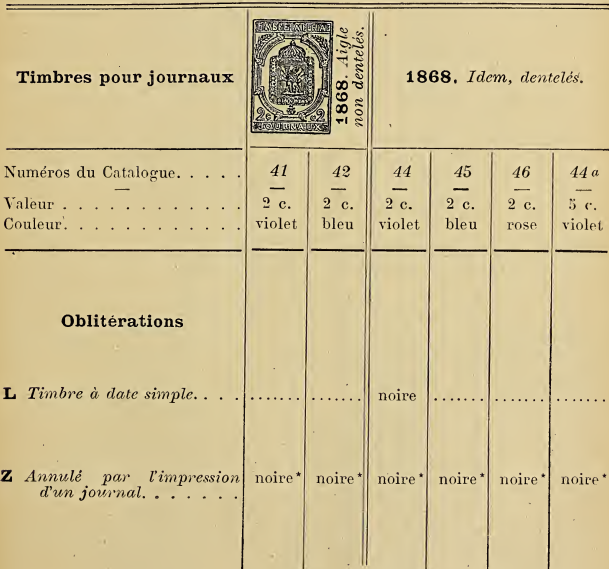 Timbres pour journaux
2c 2c
JOURNAUX
1868. Aigle
non dentelés.
1868. Idem, dentelés.
Numéros du Catalogue. . . . . 41 42 44 45 46 44a
Valeur . . . . . . . . . . . . . 2 c. 2 c. 2 c. 2 c. 2 c. 5 c.
Couleur. . . . . . . . . . . . . violet bleu violet bleu rose violet
Oblitérations
L Timbre à date simple. . . . ....... ....... noire ....... ....... .......
Z Annulé par l'impression noire* noire* noire* noire* noire* noire*
d'un journal. . . . . . .